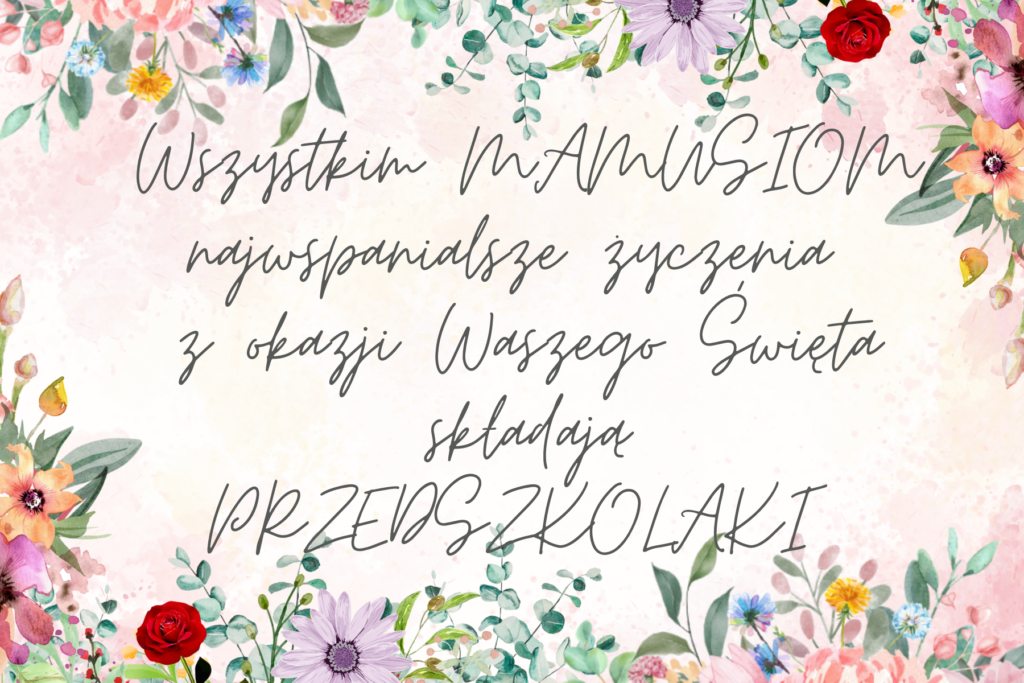 Wszystkim MAMUSIOM
najwspanialsze życzenia
z okazji Waszego Święta
składają
PRZEDSZKOLAKI